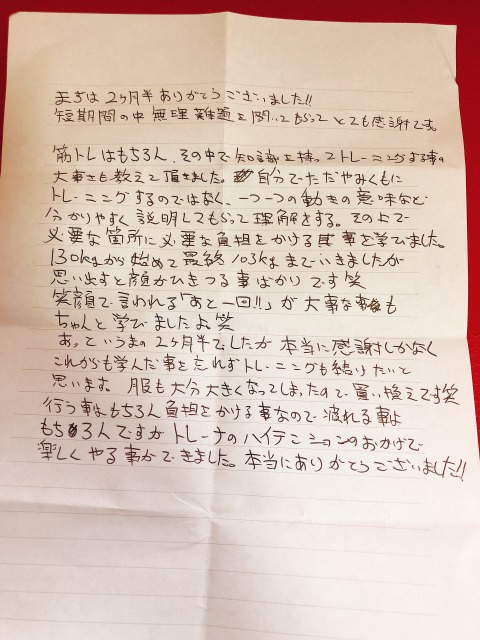 まずは2ヶ月半ありがとうございました!!
短期間の中無理難題を聞いてもらってとても感謝です。
筋トレはもちろん、その中で知識を持ってトレーニングする事の
大事さも教えて頂きました。自分でただやみくもに
トレーニングするのではなく、一つ一つの動きの意味など
分かりやすく説明してもらって理解をする。その上で
必要な箇所に必要な負担をかける事を学びました。
130kgから始めて最終103kgまでいきましたが
思い出すと顔がひきつる事ばかりです笑
笑顔で言われる「あと一回!!」が大事な事も
ちゃんと学びましたよ笑
あっというまの2ヶ月半でしたが本当に感謝しかなく
これからも学んだ事を忘れずトレーニングも続けたいと
思います。服も大分大きくなってしまったので買い換えです笑
行う事はもちろん負担をかける事なので疲れる事は
もちろんですがトレーナのハイテンションのおかげで
楽しくやる事ができました。本当にありがとうございました!!